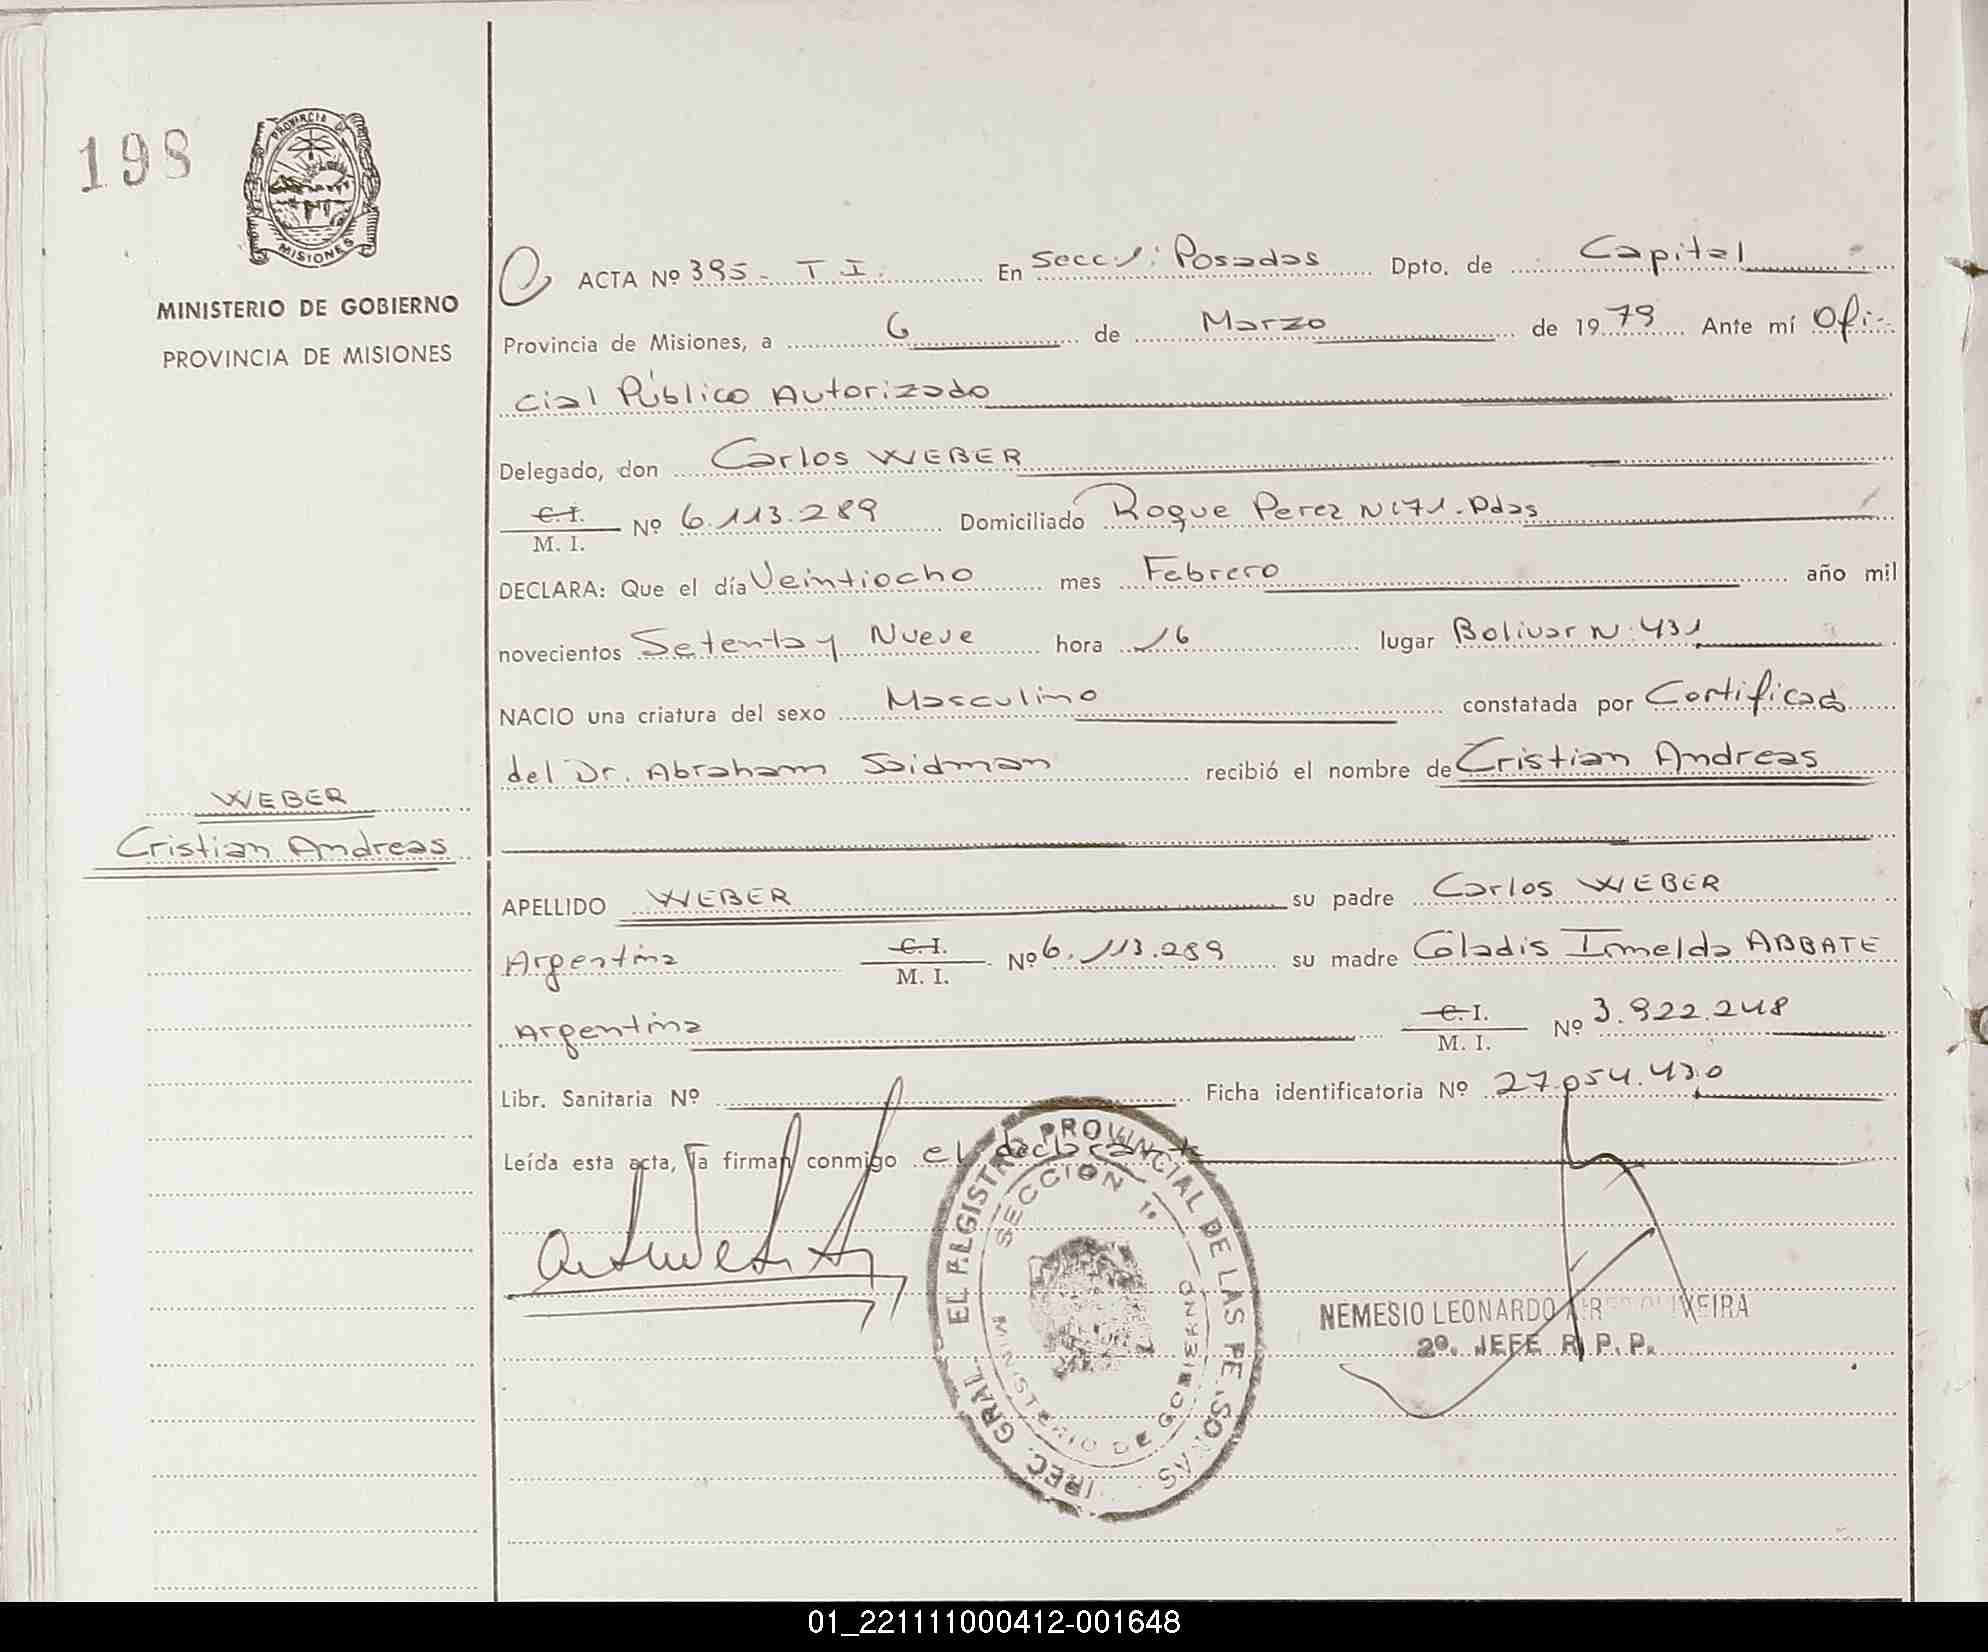 198
PROVINCIA DE
MISIONES
MINISTERIO DE GOBIERNO
PROVINCIA DE MISIONES
WEBER
Cristian Andreas
ACTA Nº 395 - T I. En Secc 1: Posadas Dpto. de Capital
Provincia de Misiones, a 6 de Marzo de 1979 Ante mí Ofi-
cial Público Autorizado
Delegado, don Carlos WEBER
C.I.
M. I. Nº 6.113.289 Domiciliado Roque Perez N 171. Pdas
DECLARA: Que el día Veintiocho mes Febrero año mil
novecientos Setenta y Nueve hora 16 lugar Bolivar N: 431
NACIO una criatura del sexo Masculino constatada por Certificado
del Dr. Abraham Saidman recibió el nombre de Cristian Andreas
APELLIDO WEBER su padre Carlos WEBER
Argentina C.I. M. I. Nº 6.113.289 su madre Gladis Irmelda ABBATE
Argentina C.I. M. I. Nº 3.922.248
Libr. Sanitaria Nº Ficha identificatoria Nº 27.054.430
Leída esta acta, la firman conmigo el declarante
SECCION 1ª
MINISTERIO DE GOBIERNO
PROVINCIAL DE LAS
NEMESIO LEONARDO
2º. JEFE R. P. P.
01_221111000412-001648